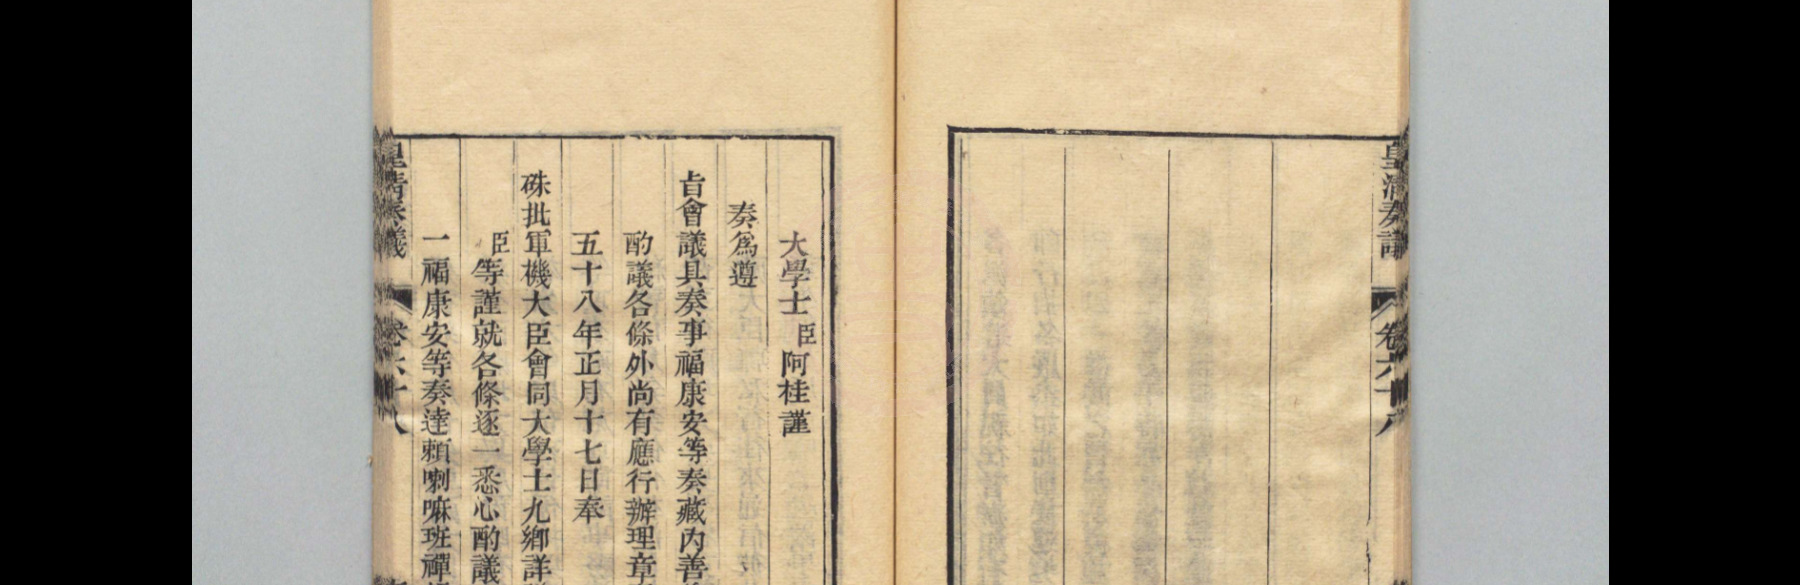 皇清奏議
卷六十八
大學士臣阿桂謹
奏爲遵
旨會議具奏事福康安等奏藏內善
酌議各條外尚有應行辦理章
五十八年正月十七日奉
硃批軍機大臣會同大學士九卿詳
臣等謹就各條逐一悉心酌議
一福康安等奏達賴喇嘛班禪
皇清奏議
卷六十八